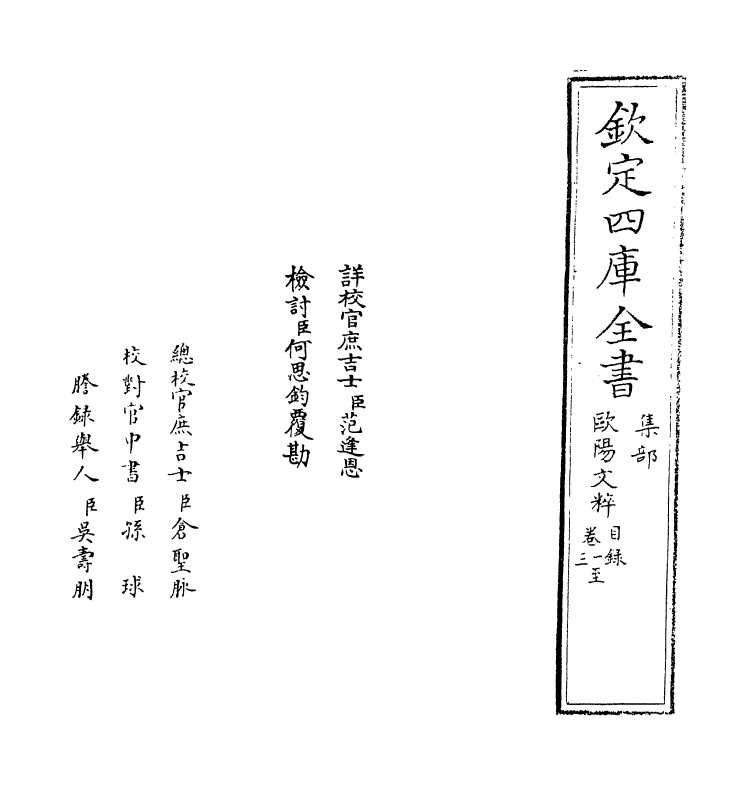 欽定四庫全書
集部
歐陽文粹
目錄
卷一至
三
詳校官庶吉士臣范逢恩
檢討臣何思鈞覆勘
總校官庶吉士臣倉聖脉
校對官中書臣孫球
謄錄舉人臣吳壽朋